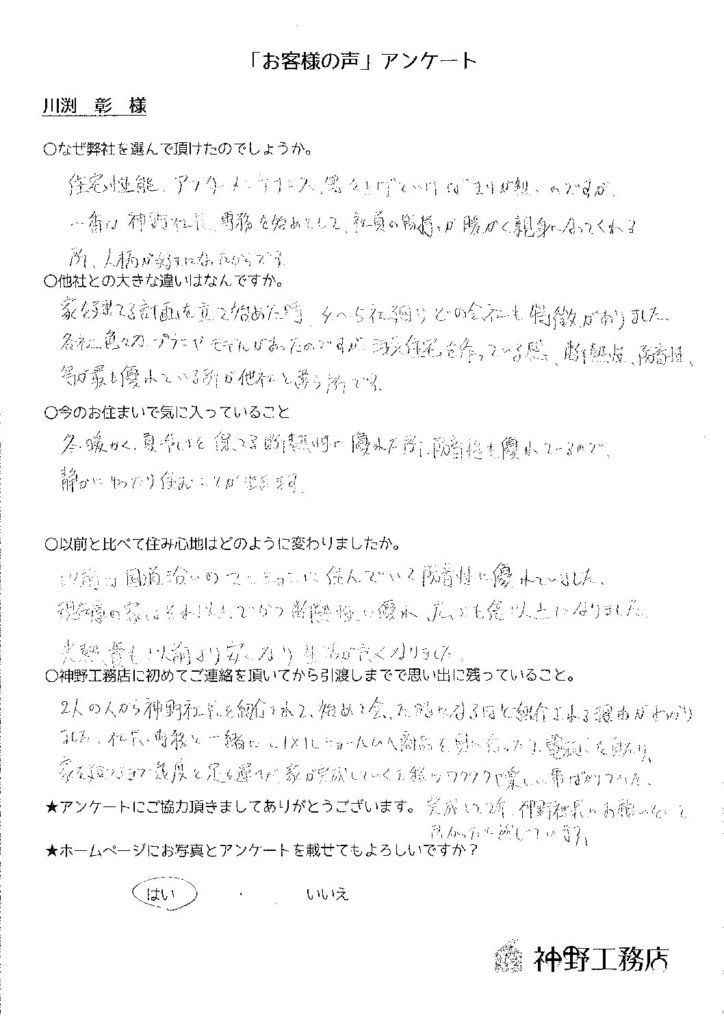 「お客様の声」アンケート
川渕 彰 様
○なぜ弊社を選んで頂けたのでしょうか。
住宅性能、アフターメンテナンス、等を上げていけばきりが無いのですが、
一番は神野社長、専務を始めとして、社員の皆様が暖かく親身になってくれる
所、人柄が好きになったからです。
○他社との大きな違いはなんですか。
家を建てる計画を立て始めた時、4〜5社廻りどの会社も特徴がありました。
各社色々なプランやモデルがあったのですが、注文住宅を作っている感、断熱性、防音性、
等が最も優れている所が他社と違う所です。
○今のお住まいで気に入っていること
冬暖かく、夏涼しさを保てる断熱性に優れた所、防音性も優れているので、
静かにゆったり住むことが出来ます。
○以前と比べて住み心地はどのように変わりましたか。
以前は国道沿いのマンションに住んでいて防音性に優れていました、
現在の家はそれ以上でかつ断熱性に優れ 広さも倍以上になりました。
光熱費も以前より安くなり 生活が良くなりました。
○神野工務店に初めてご連絡を頂いてから引渡しまでで思い出に残っていること。
2人の人から神野社長を紹介されて、始めて会った時なるほど紹介される理由がわかり
ました、社長、専務と一緒にLIXILショールームへ商品を見に行ったり、
家を建てるまで幾度と足を運び、家が完成していく工程はワクワクや楽しい事ばかりでした。
★アンケートにご協力頂きましてありがとうございます。 完成して2年、神野社長にお願いをして
良かったと感じています。
★ホームページにお写真とアンケートを載せてもよろしいですか？
はい ・ いいえ
神野工務店